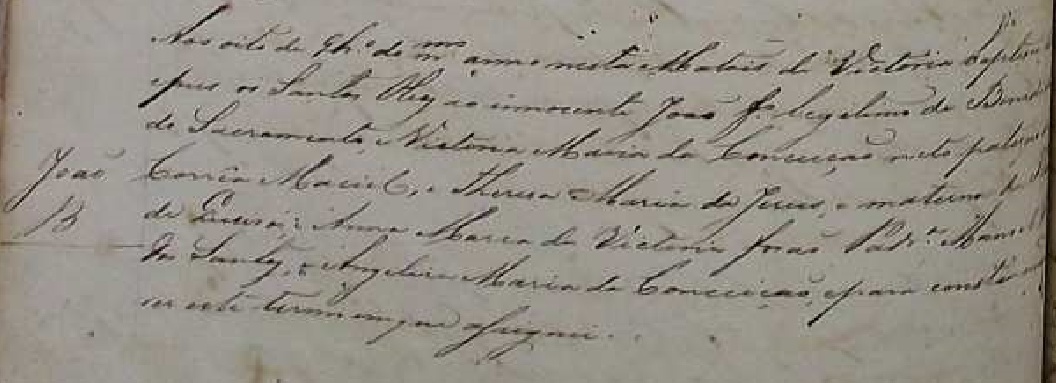 Aos oito de 8br.o do m.mo anno nesta Matris da Victoria baptisei
e pus os Santos Oleos ao innocente João f.o legitimo de
do Sacramento, Victoria Maria da Conceição neto paterno
João Corrêa Maciel, e Theresa Maria de Jesus, e materno
B de e Anna Maria da Victoria forão Padr.os Manoel
dos Santos, e Angelica Maria da Conceição, e para constar
este termo em que assignei.